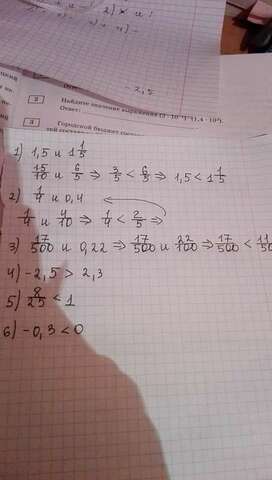 2,5
3 Найдите значение выражения
Ответ:
3 Городской бюджет
1) 1,5 и 1 1/5
15/10 и 6/5 ⇒ 3/5 < 6/5 ⇒ 1,5 < 1 1/5
2) 1/4 и 0,4
1/4 и 4/10 ⇒ 1/4 < 2/5 ⇒
3) 17/500 и 0,22 ⇒ 17/500 и 22/100 ⇒ 17/500 < 11/50
4) -2,5 > 2,3
5) 8/25 < 1
6) -0,3 < 0